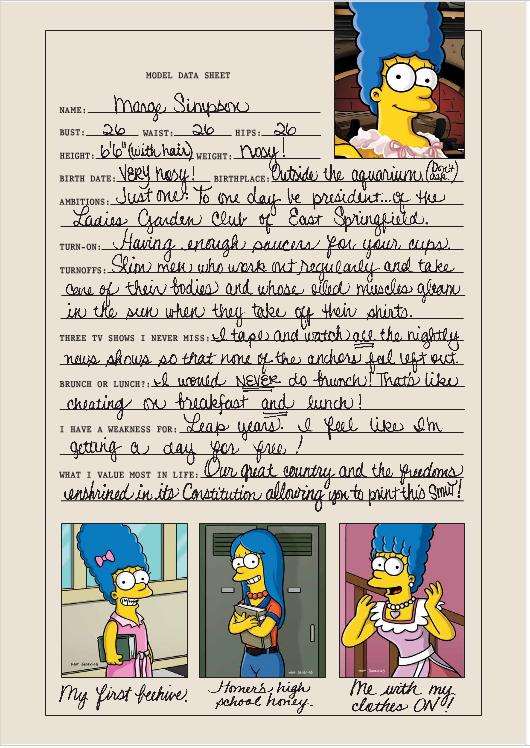 MODEL DATA SHEET
NAME: Marge Simpson
BUST: 26 WAIST: 26 HIPS: 26
HEIGHT: 6'6" (with hair) WEIGHT: nosy!
BIRTH DATE: VERY nosy! BIRTHPLACE: Outside the aquarium (Don't ask.)
AMBITIONS: Just one: To one day be president...of the
Ladies Garden Club of East Springfield.
TURN-ON: Having enough saucers for your cups.
TURNOFFS: Slim men who work out regularly and take
care of their bodies and whose oiled muscles gleam
in the sun when they take off their shirts.
THREE TV SHOWS I NEVER MISS: I tape and watch all the nightly
news shows so that none of the anchors feel left out.
BRUNCH OR LUNCH?: I would NEVER do brunch! That's like
cheating on breakfast and lunch!
I HAVE A WEAKNESS FOR: Leap years. I feel like I'm
getting a day for free!
WHAT I VALUE MOST IN LIFE: Our great country and the freedoms
enshrined in its Constitution allowing you to print this Smut!
MATT GROENING
MATT GROENING
MATT GROENING
My first beehive.
Homer's high
school honey.
Me with my
clothes ON!